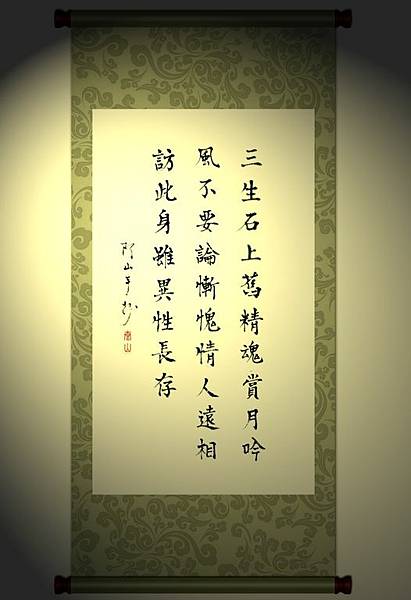 三生石上舊精魂賞月吟
風不要論慚愧情人遠相
訪此身雖異性長存
山手抄